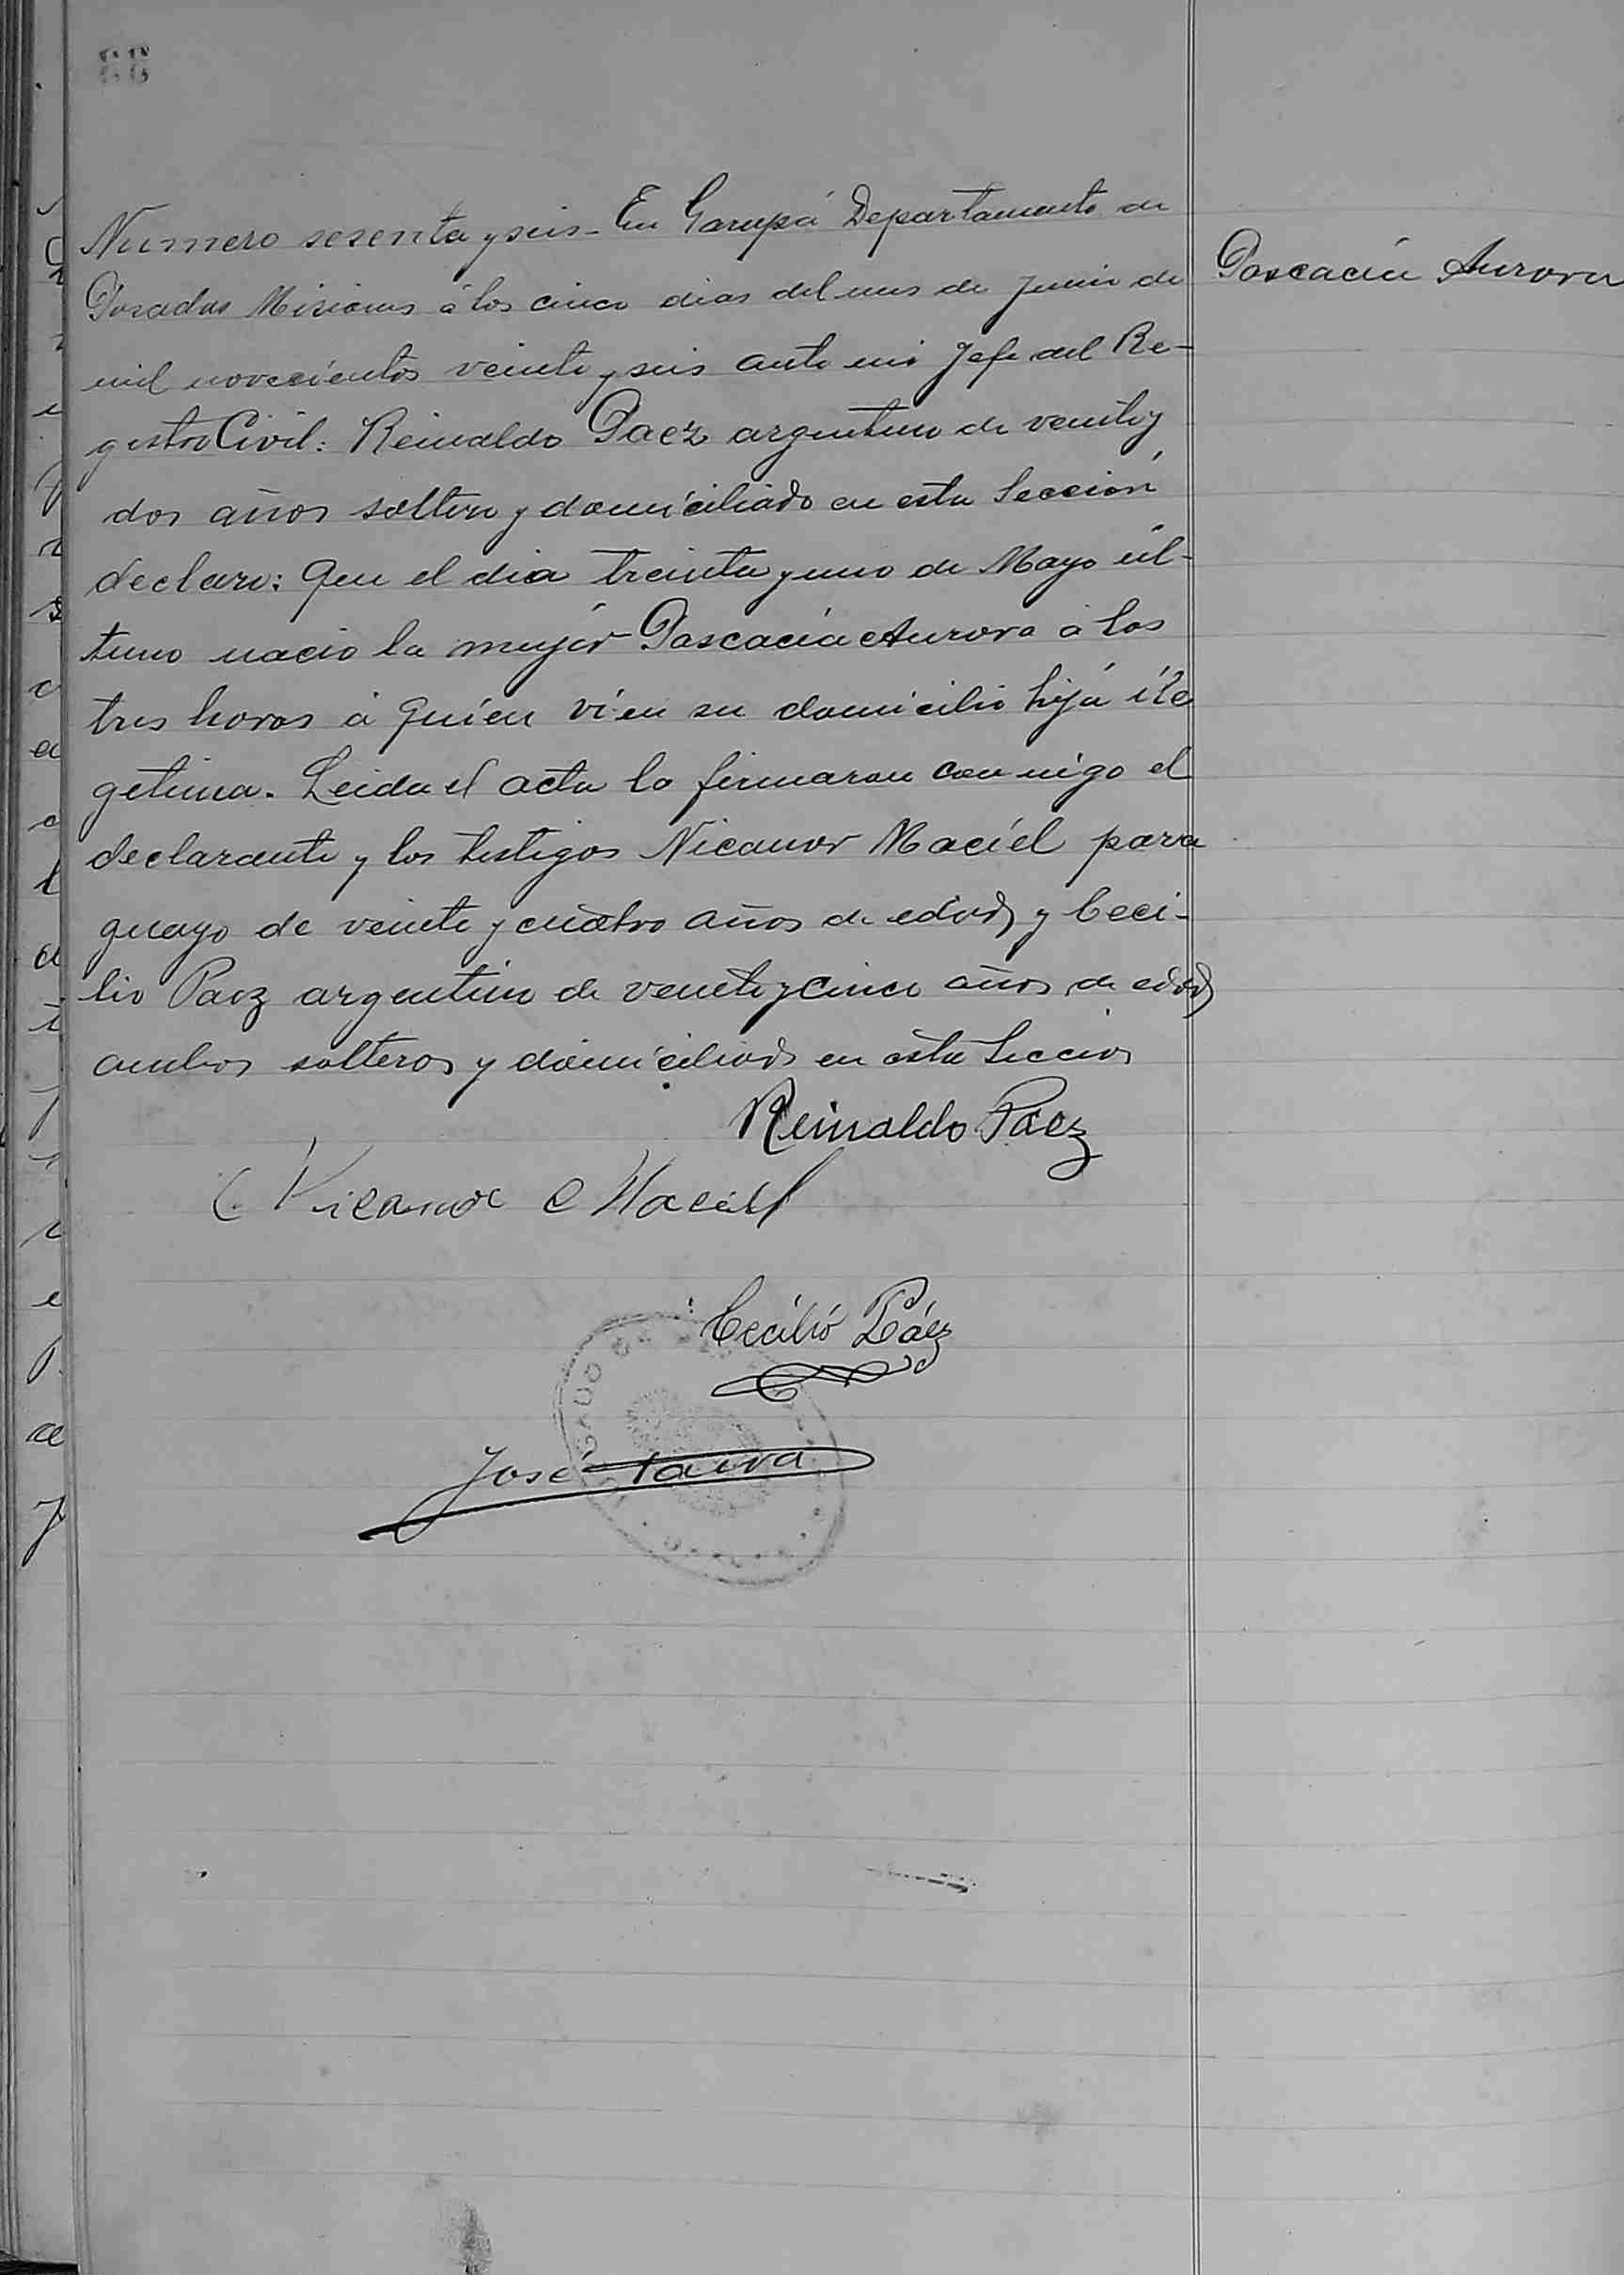 66
Numero sesenta y seis - En Garupá Departamento de
Posadas Misiones á los cinco dias del mes de Junio de
mil novecientos veinte y seis ante mi Jefe del Re-
gistro Civil: Reinaldo Paez argentino de veinte y
dos años soltero y domiciliado en esta Sección
declaro: Que el dia treinta y uno de Mayo úl-
timo nacio la mujer Pascacia Aurora á las
tres horas á quien vi en su domicilio hija ile
getima. Leida el acta la firmaron conmigo el
declarante y los testigos Nicanor Maciel para
guayo de veinte y cuatro años de edad y Ceci-
lio Paez argentino de veinte y cinco años de edad
ambos solteros y domiciliados en esta Seccion
Pascacia Aurora
Reinaldo Paez
Nicanor Maciel
Cecilio Páez
José